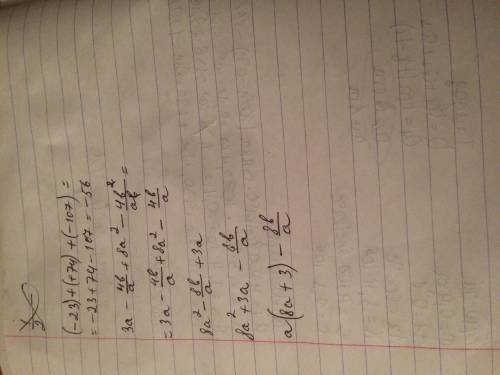 (-23)+(+74)+(-107) =
= -23+74-107 = -56
3a - 4b/a + 8a² - 4b²/ab =
= 3a - 4b/a + 8a² - 4b/a
8a² - 8b/a + 3a
8a² + 3a - 8b/a
a(8a+3) - 8b/a